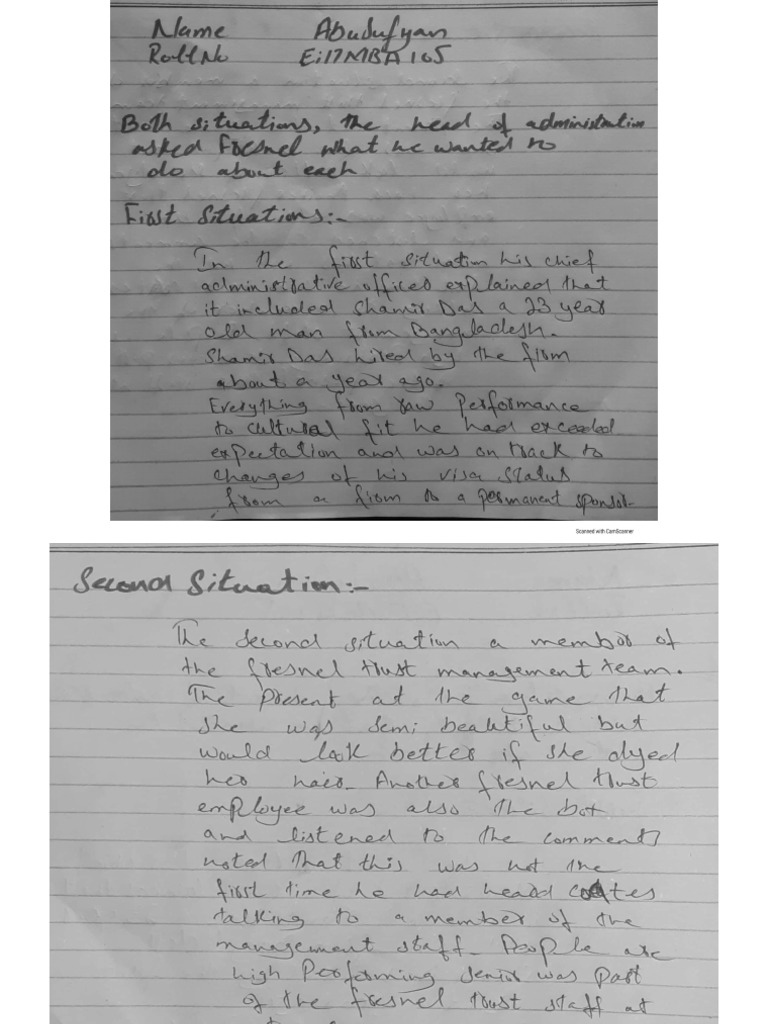 Name Abudufyan
Roll No Ei17MBA105
Both situations, the head of administration
asked Fresnel what he wanted to
do about each
First Situations:-
In the first situation his chief
administrative officer explained that
it included Shamir Das a 23 year
old man from Bangladesh.
Shamir Das hired by the firm
about a year ago.
Everything from raw performance
to cultural fit he had exceeded
expectation and was on track to
changes of his visa status
from a firm to a permanent sponsor-
Scanned with CamScanner
Second Situation:-
The second situation a member of
the fresnel trust management team.
The present at the game that
she was semi beautiful but
would look better if she dyed
her hair. Another fresnel trust
employee was also the bot
and listened to the comment
noted that this was not the
first time he had heard Coates
talking to a member of the
management staff. People are
high Performing senior was part
of the fresnel trust staff at